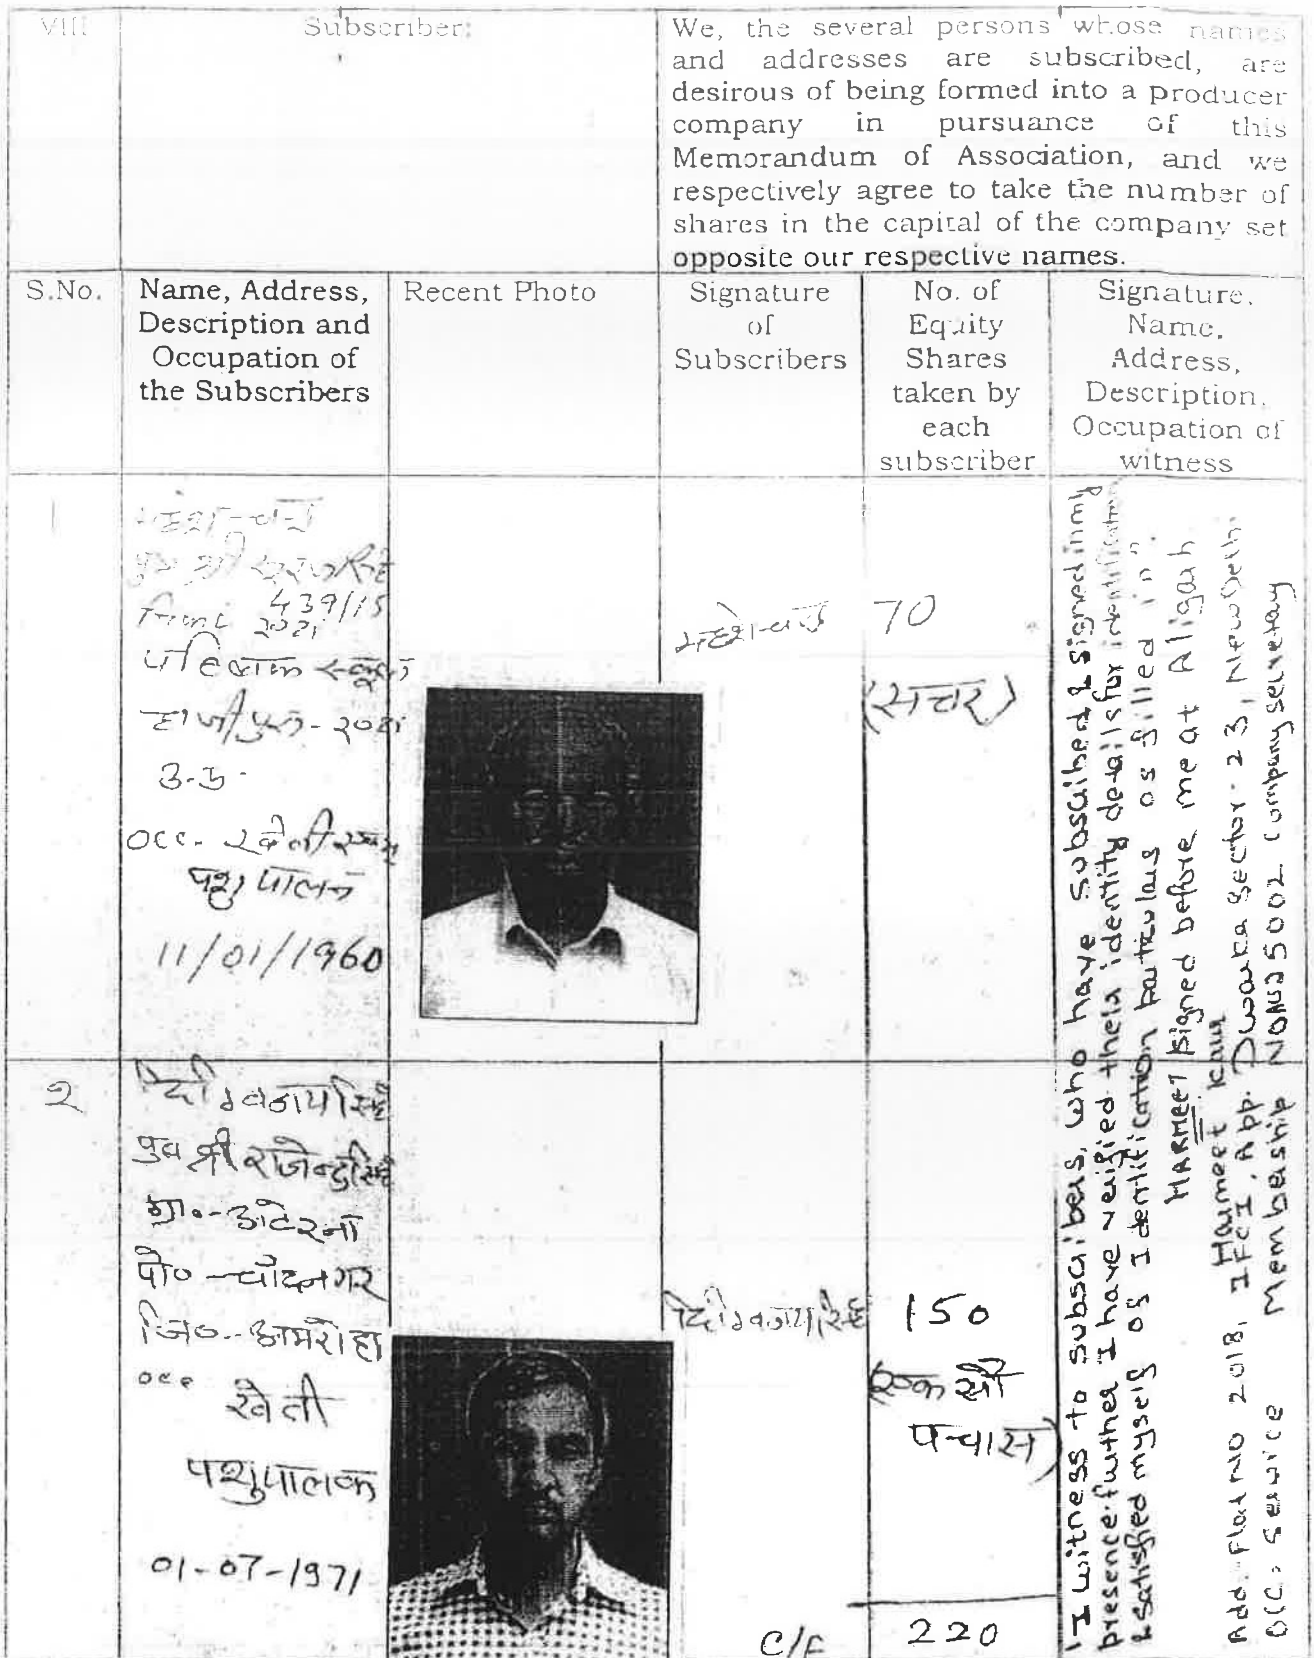 VIII
Subscriber:
We, the several persons whose names
and addresses are subscribed, are
desirous of being formed into a producer
company in pursuance of this
Memorandum of Association, and we
respectively agree to take the number of
shares in the capital of the company set
opposite our respective names.
S.No.
Name, Address,
Description and
Occupation of
the Subscribers
Recent Photo
Signature
of
Subscribers
No. of
Equity
Shares
taken by
each
subscriber
Signature,
Name,
Address,
Description,
Occupation of
witness
1
439/15
उ.प्र.
occ.
पशुपालन
11/01/1960
70
(सत्तर)
2
पुत्र श्री राजेन्द्र सिंह
ग्रा०-
पो०-चाँदनगर
जि०-अमरोहा
occ
खेती
पशुपालक
01-07-1971
150
(एक सौ
पचास)
C/F
220
I witness to subscribers, who have subscribed & signed in my
presence. further I have verified their identity details for identification
& satisfied myself of Identification particulars as filled in.
HARMEET Signed before me at Aligarh
Harmeet Kaur
Add. Flat No 201B, IFCI, App. Dwarka Sector-23, New Delhi.
occ. service Membership No 25002 company secretary